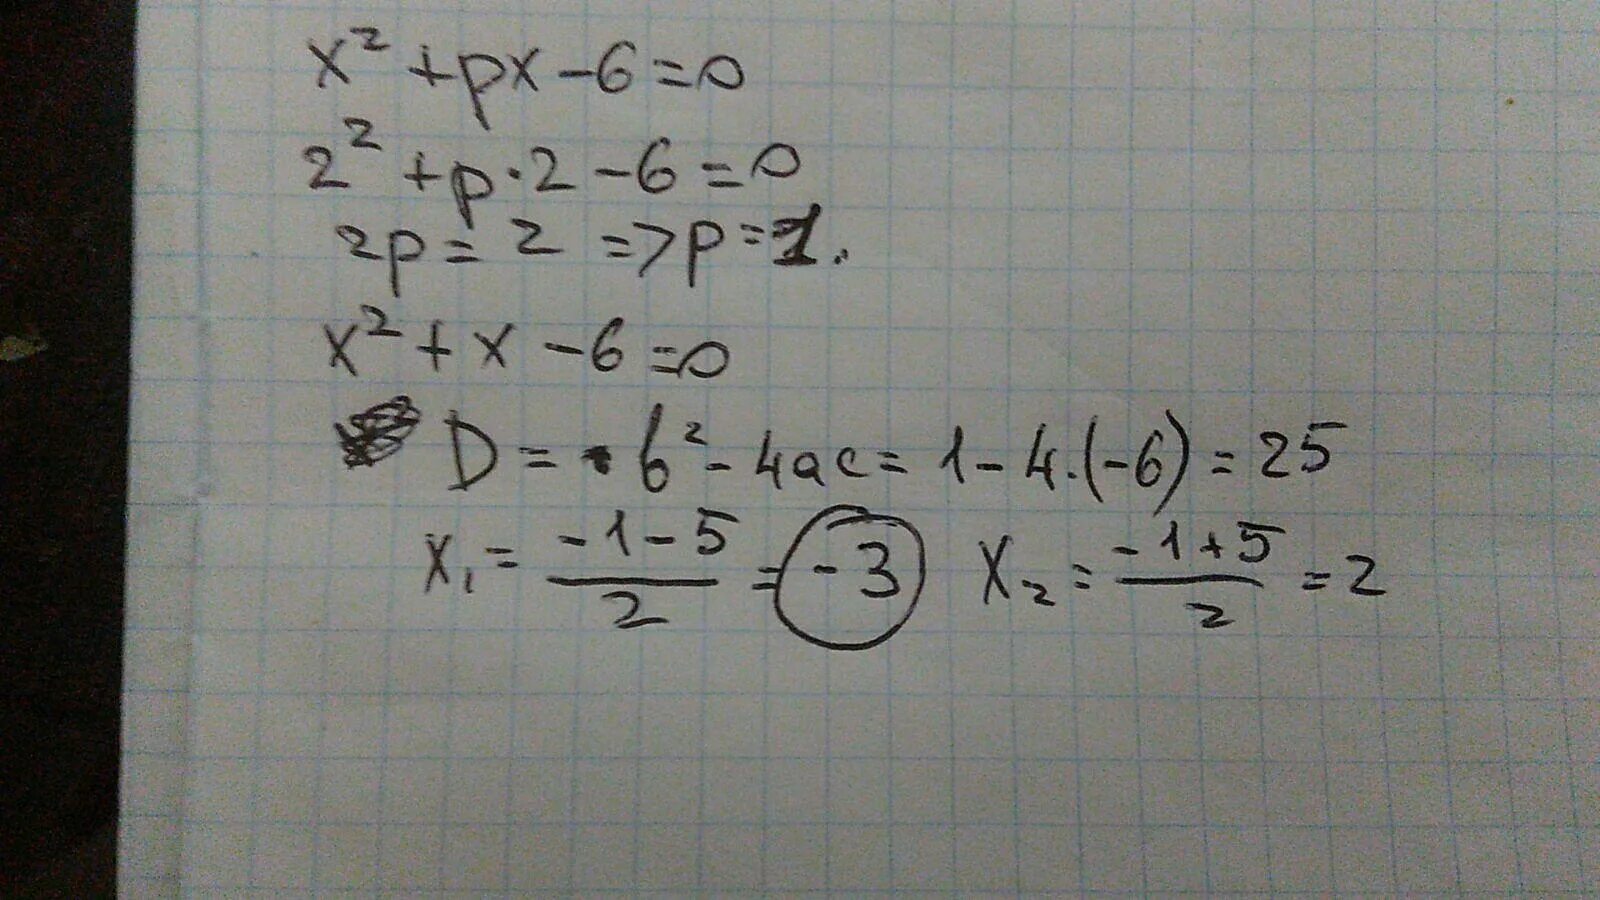 x² + px - 6 = 0
2² + p · 2 - 6 = 0
2p = 2 => p = 1.
x² + x - 6 = 0
D = b² - 4ac = 1 - 4 · (-6) = 25
x₁ = (-1 - 5)/2 = -3 x₂ = (-1 + 5)/2 = 2